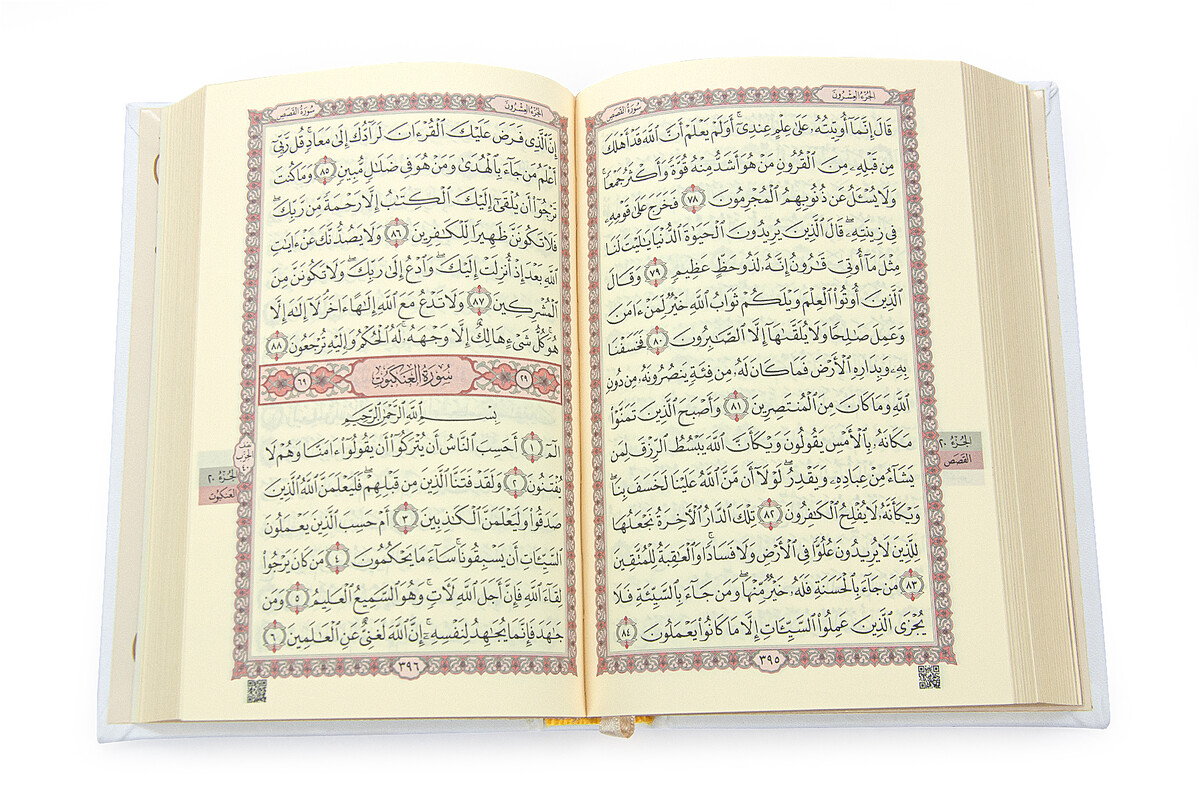 الجزء العشرون
سورة القصص
قَالَ إِنَّمَآ أُوتِيتُهُۥ عَلَىٰ عِلْمٍ عِندِىٓ ۚ أَوَلَمْ يَعْلَمْ أَنَّ ٱللَّهَ قَدْ أَهْلَكَ
مِن قَبْلِهِۦ مِنَ ٱلْقُرُونِ مَنْ هُوَ أَشَدُّ مِنْهُ قُوَّةً وَأَكْثَرُ جَمْعًا ۚ
وَلَا يُسْـَٔلُ عَن ذُنُوبِهِمُ ٱلْمُجْرِمُونَ ٧٨ فَخَرَجَ عَلَىٰ قَوْمِهِۦ
فِى زِينَتِهِۦ ۖ قَالَ ٱلَّذِينَ يُرِيدُونَ ٱلْحَيَوٰةَ ٱلدُّنْيَا يَـٰلَيْتَ لَنَا
مِثْلَ مَآ أُوتِىَ قَـٰرُونُ إِنَّهُۥ لَذُو حَظٍّ عَظِيمٍ ٧٩ وَقَالَ
ٱلَّذِينَ أُوتُوا۟ ٱلْعِلْمَ وَيْلَكُمْ ثَوَابُ ٱللَّهِ خَيْرٌ لِّمَنْ ءَامَنَ
وَعَمِلَ صَـٰلِحًا وَلَا يُلَقَّىٰهَآ إِلَّا ٱلصَّـٰبِرُونَ ٨٠ فَخَسَفْنَا
بِهِۦ وَبِدَارِهِ ٱلْأَرْضَ فَمَا كَانَ لَهُۥ مِن فِئَةٍ يَنصُرُونَهُۥ مِن دُونِ
ٱللَّهِ وَمَا كَانَ مِنَ ٱلْمُنتَصِرِينَ ٨١ وَأَصْبَحَ ٱلَّذِينَ تَمَنَّوْا۟
مَكَانَهُۥ بِٱلْأَمْسِ يَقُولُونَ وَيْكَأَنَّ ٱللَّهَ يَبْسُطُ ٱلرِّزْقَ لِمَن
يَشَآءُ مِنْ عِبَادِهِۦ وَيَقْدِرُ ۖ لَوْلَآ أَن مَّنَّ ٱللَّهُ عَلَيْنَا لَخَسَفَ بِنَا ۖ
وَيْكَأَنَّهُۥ لَا يُفْلِحُ ٱلْكَـٰفِرُونَ ٨٢ تِلْكَ ٱلدَّارُ ٱلْـَٔاخِرَةُ نَجْعَلُهَا
لِلَّذِينَ لَا يُرِيدُونَ عُلُوًّا فِى ٱلْأَرْضِ وَلَا فَسَادًا ۚ وَٱلْعَـٰقِبَةُ لِلْمُتَّقِينَ
٨٣ مَن جَآءَ بِٱلْحَسَنَةِ فَلَهُۥ خَيْرٌ مِّنْهَا ۖ وَمَن جَآءَ بِٱلسَّيِّئَةِ فَلَا
يُجْزَى ٱلَّذِينَ عَمِلُوا۟ ٱلسَّيِّـَٔاتِ إِلَّا مَا كَانُوا۟ يَعْمَلُونَ ٨٤
٣٩٥
الجزء ٢٠
القصص
الجزء العشرون
سورة القصص
إِنَّ ٱلَّذِى فَرَضَ عَلَيْكَ ٱلْقُرْءَانَ لَرَآدُّكَ إِلَىٰ مَعَادٍ ۚ قُل رَّبِّىٓ
أَعْلَمُ مَن جَآءَ بِٱلْهُدَىٰ وَمَنْ هُوَ فِى ضَلَـٰلٍ مُّبِينٍ ٨٥ وَمَا كُنتَ
تَرْجُوٓا۟ أَن يُلْقَىٰٓ إِلَيْكَ ٱلْكِتَـٰبُ إِلَّا رَحْمَةً مِّن رَّبِّكَ ۖ
فَلَا تَكُونَنَّ ظَهِيرًا لِّلْكَـٰفِرِينَ ٨٦ وَلَا يَصُدُّنَّكَ عَنْ ءَايَـٰتِ
ٱللَّهِ بَعْدَ إِذْ أُنزِلَتْ إِلَيْكَ ۖ وَٱدْعُ إِلَىٰ رَبِّكَ ۖ وَلَا تَكُونَنَّ مِنَ
ٱلْمُشْرِكِينَ ٨٧ وَلَا تَدْعُ مَعَ ٱللَّهِ إِلَـٰهًا ءَاخَرَ ۘ لَآ إِلَـٰهَ إِلَّا
هُوَ ۚ كُلُّ شَىْءٍ هَالِكٌ إِلَّا وَجْهَهُۥ ۚ لَهُ ٱلْحُكْمُ وَإِلَيْهِ تُرْجَعُونَ ٨٨
٢٩ سُورَةُ العَنكَبُوتِ ٦٩
بِسْمِ ٱللَّهِ ٱلرَّحْمَـٰنِ ٱلرَّحِيمِ
الٓمٓ ١ أَحَسِبَ ٱلنَّاسُ أَن يُتْرَكُوٓا۟ أَن يَقُولُوٓا۟ ءَامَنَّا وَهُمْ لَا
يُفْتَنُونَ ٢ وَلَقَدْ فَتَنَّا ٱلَّذِينَ مِن قَبْلِهِمْ ۖ فَلَيَعْلَمَنَّ ٱللَّهُ ٱلَّذِينَ
صَدَقُوا۟ وَلَيَعْلَمَنَّ ٱلْكَـٰذِبِينَ ٣ أَمْ حَسِبَ ٱلَّذِينَ يَعْمَلُونَ
ٱلسَّيِّـَٔاتِ أَن يَسْبِقُونَا ۚ سَآءَ مَا يَحْكُمُونَ ٤ مَن كَانَ يَرْجُوا۟
لِقَآءَ ٱللَّهِ فَإِنَّ أَجَلَ ٱللَّهِ لَـَٔاتٍ ۚ وَهُوَ ٱلسَّمِيعُ ٱلْعَلِيمُ ٥ وَمَن
جَـٰهَدَ فَإِنَّمَا يُجَـٰهِدُ لِنَفْسِهِۦٓ ۚ إِنَّ ٱللَّهَ لَغَنِىٌّ عَنِ ٱلْعَـٰلَمِينَ ٦
٣٩٦
الحزب
٤٠
الجزء ٢٠
العنكبوت